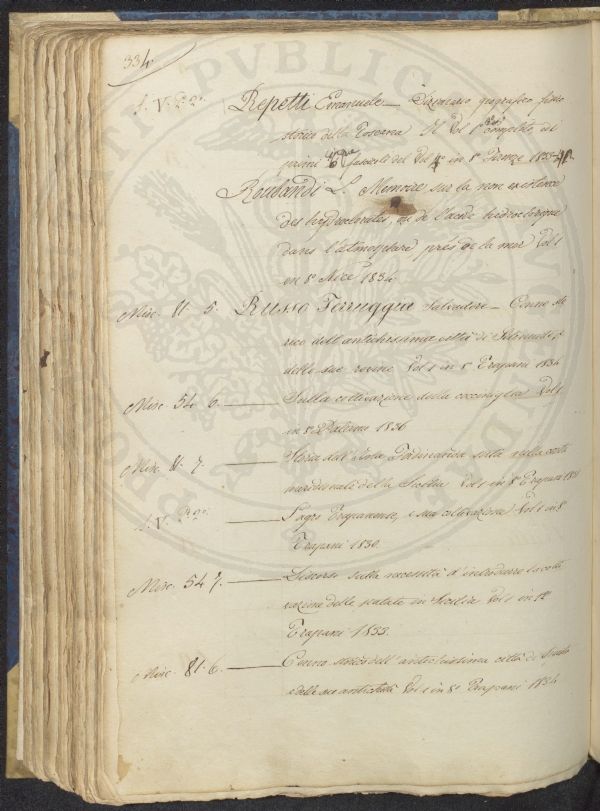 334
Repetti Emanuele — Dizionario geografico fisico
storico della Toscana Vol 1° completo, ed
primi fascicoli del Vol 4° in 8° Firenze 1833-40.
Roubandi L. Memoire sur la non existence
des hydroclorates, ou de l'acide hidroclorique
dans l'atmosphere près de la mer Vol 1
en 8° Nice 1834
Misc. 81 5. Russo Ferruggia Salvadore — Cenno sto
rico dell'antichissima città di Selinunte,
delle sue rovine Vol 1 in 8° Trapani 1834
Misc. 54 6. — Sulla coltivazione della cocciniglia Vol 1
in 8° Palermo 1836
Misc. 81. 7. — Storia dell'Isola Ferdinandea sulla costa
meridionale della Sicilia Vol 1 in 8° Trapani 1831
— Trapanese, e sua coltivazione Vol 1 in 8°
Trapani 1830.
Misc. 54 7. — Discorso sulla necessità d'introdurre la colti
vazione delle patate in Sicilia Vol 1 in 12°
Trapani 1833.
Misc. 81. 6. — Cenno storico dell'antichissima città di
e delle sue antichità Vol 1 in 8° Trapani 1834
PVBLICAE